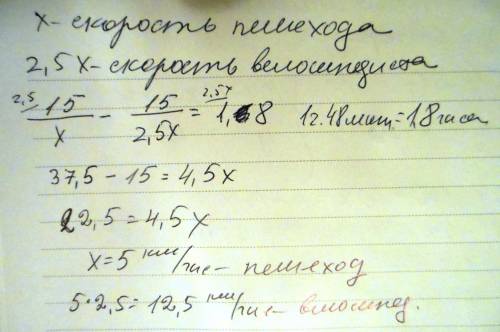 x - скорость пешехода
2,5x - скорость велосипедиста
2,5/ 15/x - 15/2,5x = 2,5x/ 1,8 1ч.48мин=1,8часа
37,5 - 15 = 4,5x
22,5 = 4,5x
x = 5 км/час - пешеход
5·2,5 = 12,5 км/час - велосипед.